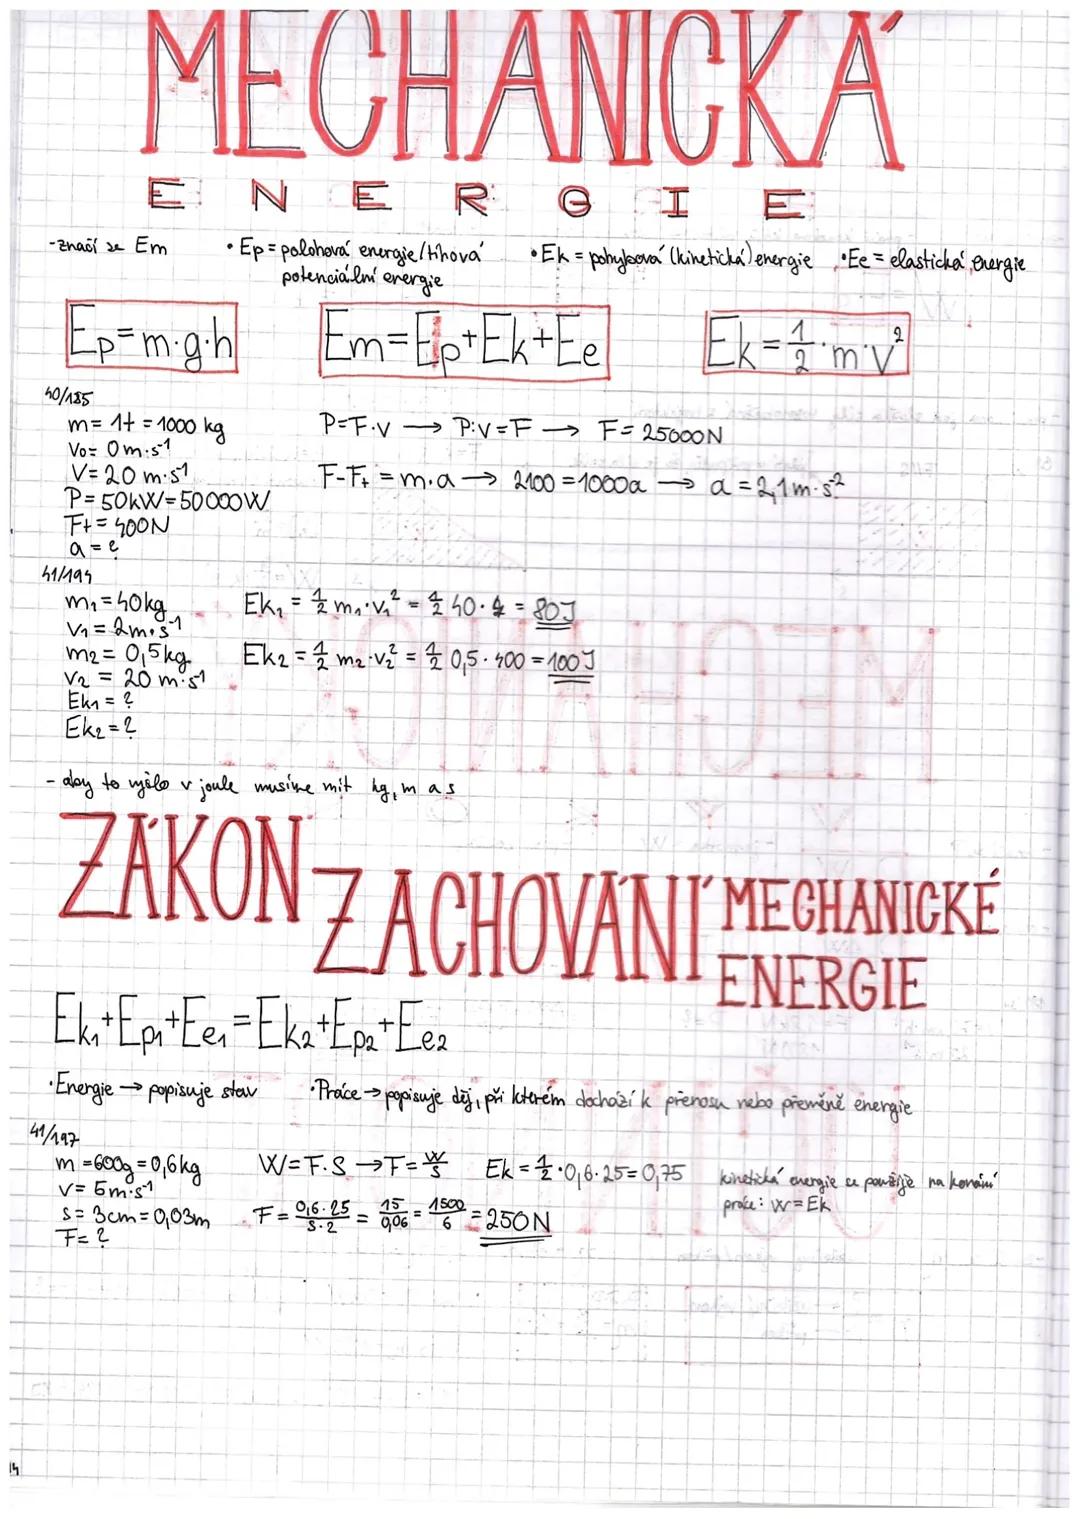 MECHANICKÁ
ENERGIE
-značí se Em
• Ep = polohová energie/tíhová
potenciální energie
• Ek = pohybová (kinetická) energie
• Ee = elastická energie
Ep=m·g·h
Em=Ep+Ek+Ee
Ek=1/2·m·v²
40/185
m= 1t = 1000 kg
V₀= 0m·s⁻¹
V=20 m·s⁻¹
P= 50kW=50000W
Ft= 400N
a = ?
P=F·v → P:v=F → F= 25000N
F-Ft = m·a → 2100 =1000a → a = 2,1m·s⁻²
41/194
m₁=40kg
V₁= 2m·s⁻¹
m₂= 0,5kg
V₂ = 20 m·s⁻¹
Ek₁ = ?
Ek₂=?
Ek₁ = 1/2 m₁·v₁² = 1/2 40·4 = 80J
Ek₂ = 1/2 m₂·v₂² = 1/2 0,5·400 = 100J
- aby to vyšlo v joule musíme mít kg, m a s
ZÁKON ZACHOVÁNÍ MECHANICKÉ
ENERGIE
Ek₁+Ep₁+Ee₁=Ek₂+Ep₂+Ee₂
• Energie → popisuje stav
• Práce → popisuje děj, při kterém dochází k přenosu nebo přeměně energie
41/197
m =600g = 0,6kg
v= 5m·s⁻¹
s= 3cm=0,03m
F= ?
W=F·S → F= W/s
Ek = 1/2·0,6·25=0,75
F= 0,6·25/S·2 = 15/0,06 = 1500/6 = 250N
kinetická energie se použije na konání
práce: W=Ek
14